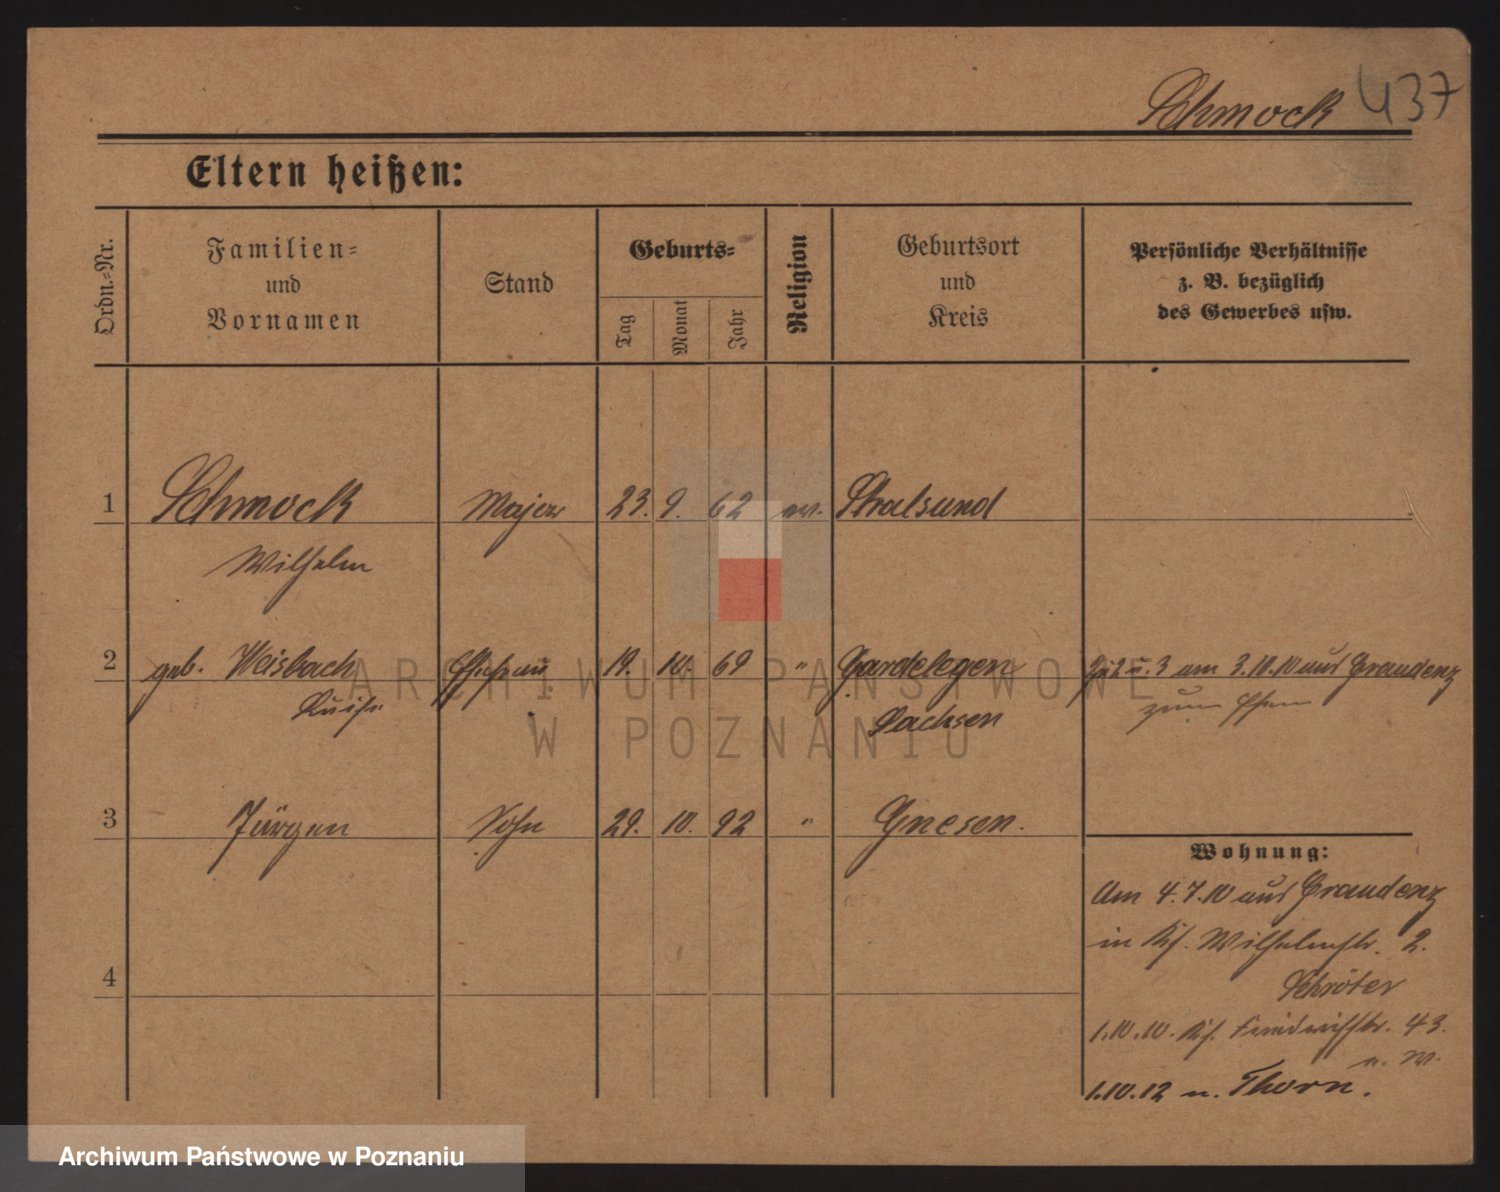 Schmock 437
Eltern heißen:
Ordn.-Nr.
Familien-
und
Vornamen
Stand
Geburts-
Tag
Monat
Jahr
Religion
Geburtsort
und
Kreis
Persönliche Verhältnisse
z. B. bezüglich
des Gewerbes usw.
1 Schmock Major 23. 9. 62 ev. Stralsund
Wilhelm
2 geb. Weisbach Ehefrau 19. 10. 69 " Gardelegen Zu 2 u. 3 am 3.10.10 aus Graudenz
Luise Sachsen zum
3 Jürgen Sohn 29. 10. 92 " Gnesen.
Wohnung:
Am 4.7.10 aus Graudenz
in Wilhelmstr. 2.
Schröter
1.10.10. 43.
1.10.12 n. Thorn.
4
ARCHIWUM PAŃSTWOWE
W POZNANIU
Archiwum Państwowe w Poznaniu